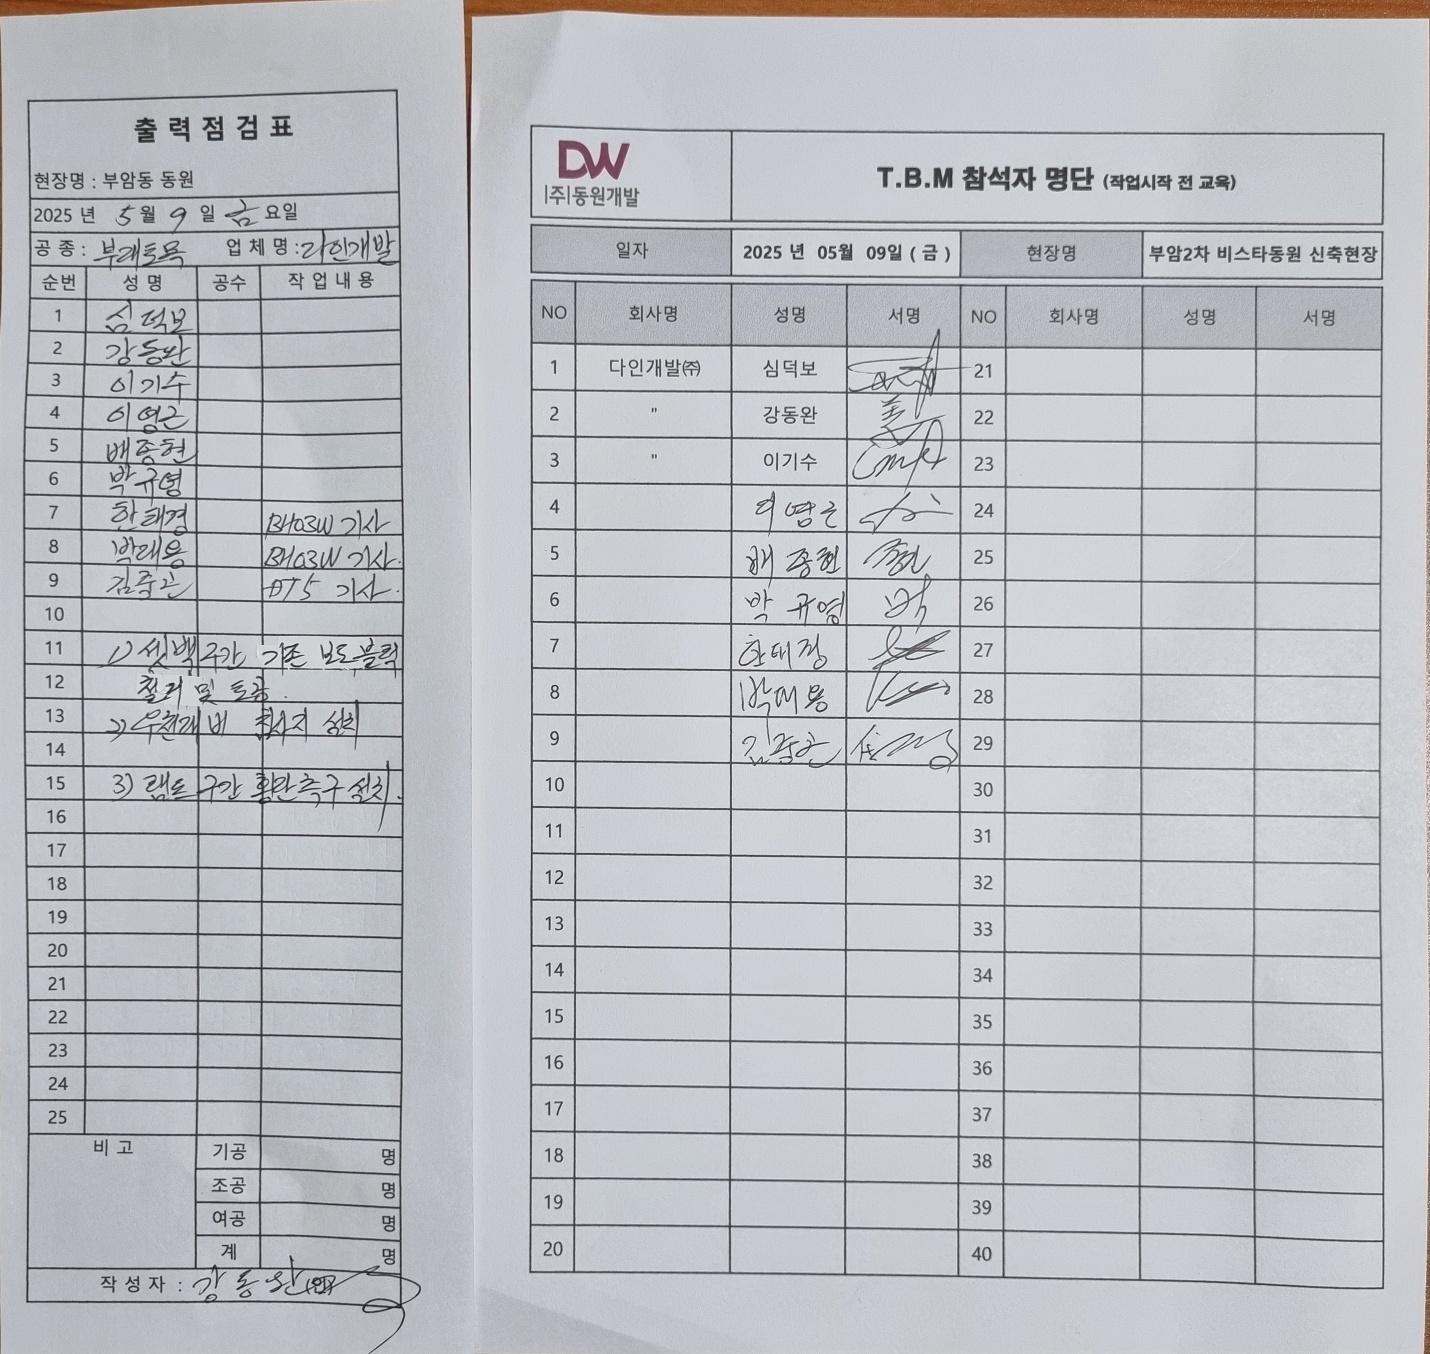 출력점검표
현장명 : 부암동 동원
2025 년 5월 9일 금요일
공 종 : 부대토목 업체명 : 다인개발
순번 성명 공수 작업내용
1 심덕보
2 강동완
3 이기수
4 이영근
5 배종현
6 박규영
7 한태경 BH03W 기사
8 박대용 BH03W 기사.
9 김중곤 DT5 기사.
10
11 1) 셋백구간 기존 보도블럭
12 철거 및 토공.
13 2) 우천대비 침사지 설치
14
15 3) 램프 구간 횡단측구 설치.
16
17
18
19
20
21
22
23
24
25
비고 기공 명
조공 명
여공 명
계 명
작성자 : 강동완 (인)
DW
(주)동원개발
T.B.M 참석자 명단 (작업시작 전 교육)
일자 2025 년 05월 09일 ( 금 ) 현장명 부암2차 비스타동원 신축현장
NO 회사명 성명 서명 NO 회사명 성명 서명
1 다인개발㈜ 심덕보 21
2 " 강동완 22
3 " 이기수 23
4 이영근 24
5 배종현 25
6 박규영 26
7 한태경 27
8 박대용 28
9 김중곤 29
10 30
11 31
12 32
13 33
14 34
15 35
16 36
17 37
18 38
19 39
20 40